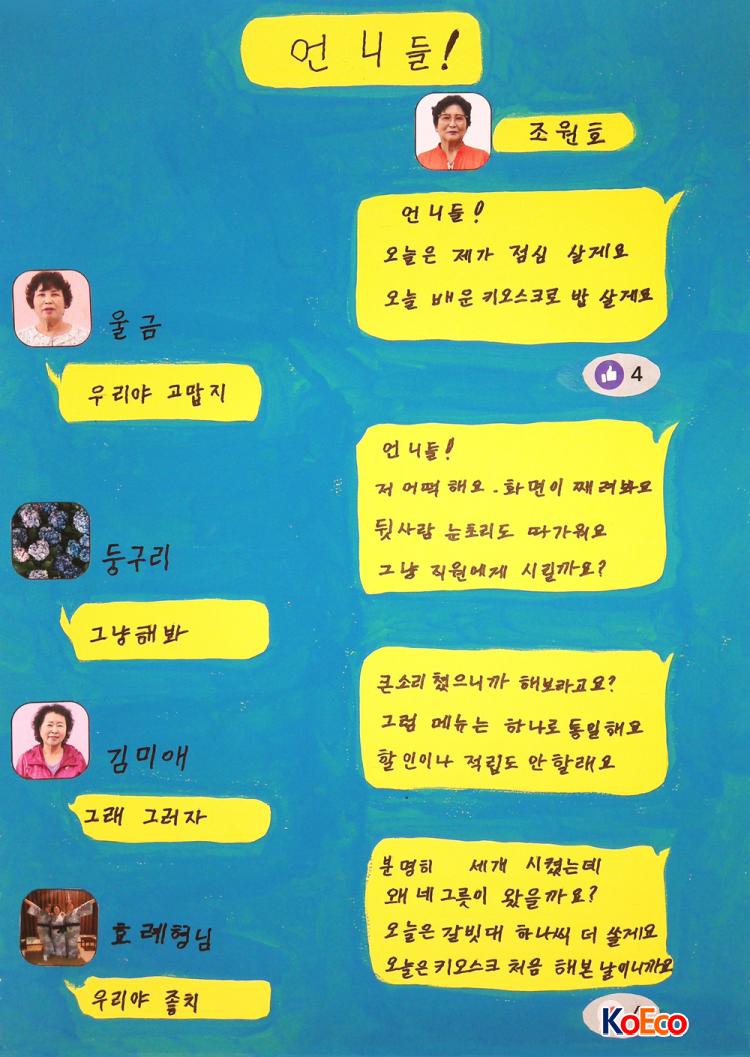 언니들!
조원호
언니들!
오늘은 제가 점심 살게요
오늘 배운 키오스크로 밥 살게요
4
울금
우리야 고맙지
언니들!
저 어떡해요. 화면이 째려봐요
뒷사람 눈초리도 따가워요
그냥 직원에게 시킬까요?
둥구리
그냥해봐
큰소리 쳤으니까 해보라고요?
그럼 메뉴는 하나로 통일해요
할인이나 적립도 안 할래요
김미애
그래 그러자
분명히 세개 시켰는데
왜 네 그릇이 왔을까요?
오늘은 갈빗대 하나씩 더 쏠게요
오늘은 키오스크 처음 해본 날이니까요
호례형님
우리야 좋치
KoEco